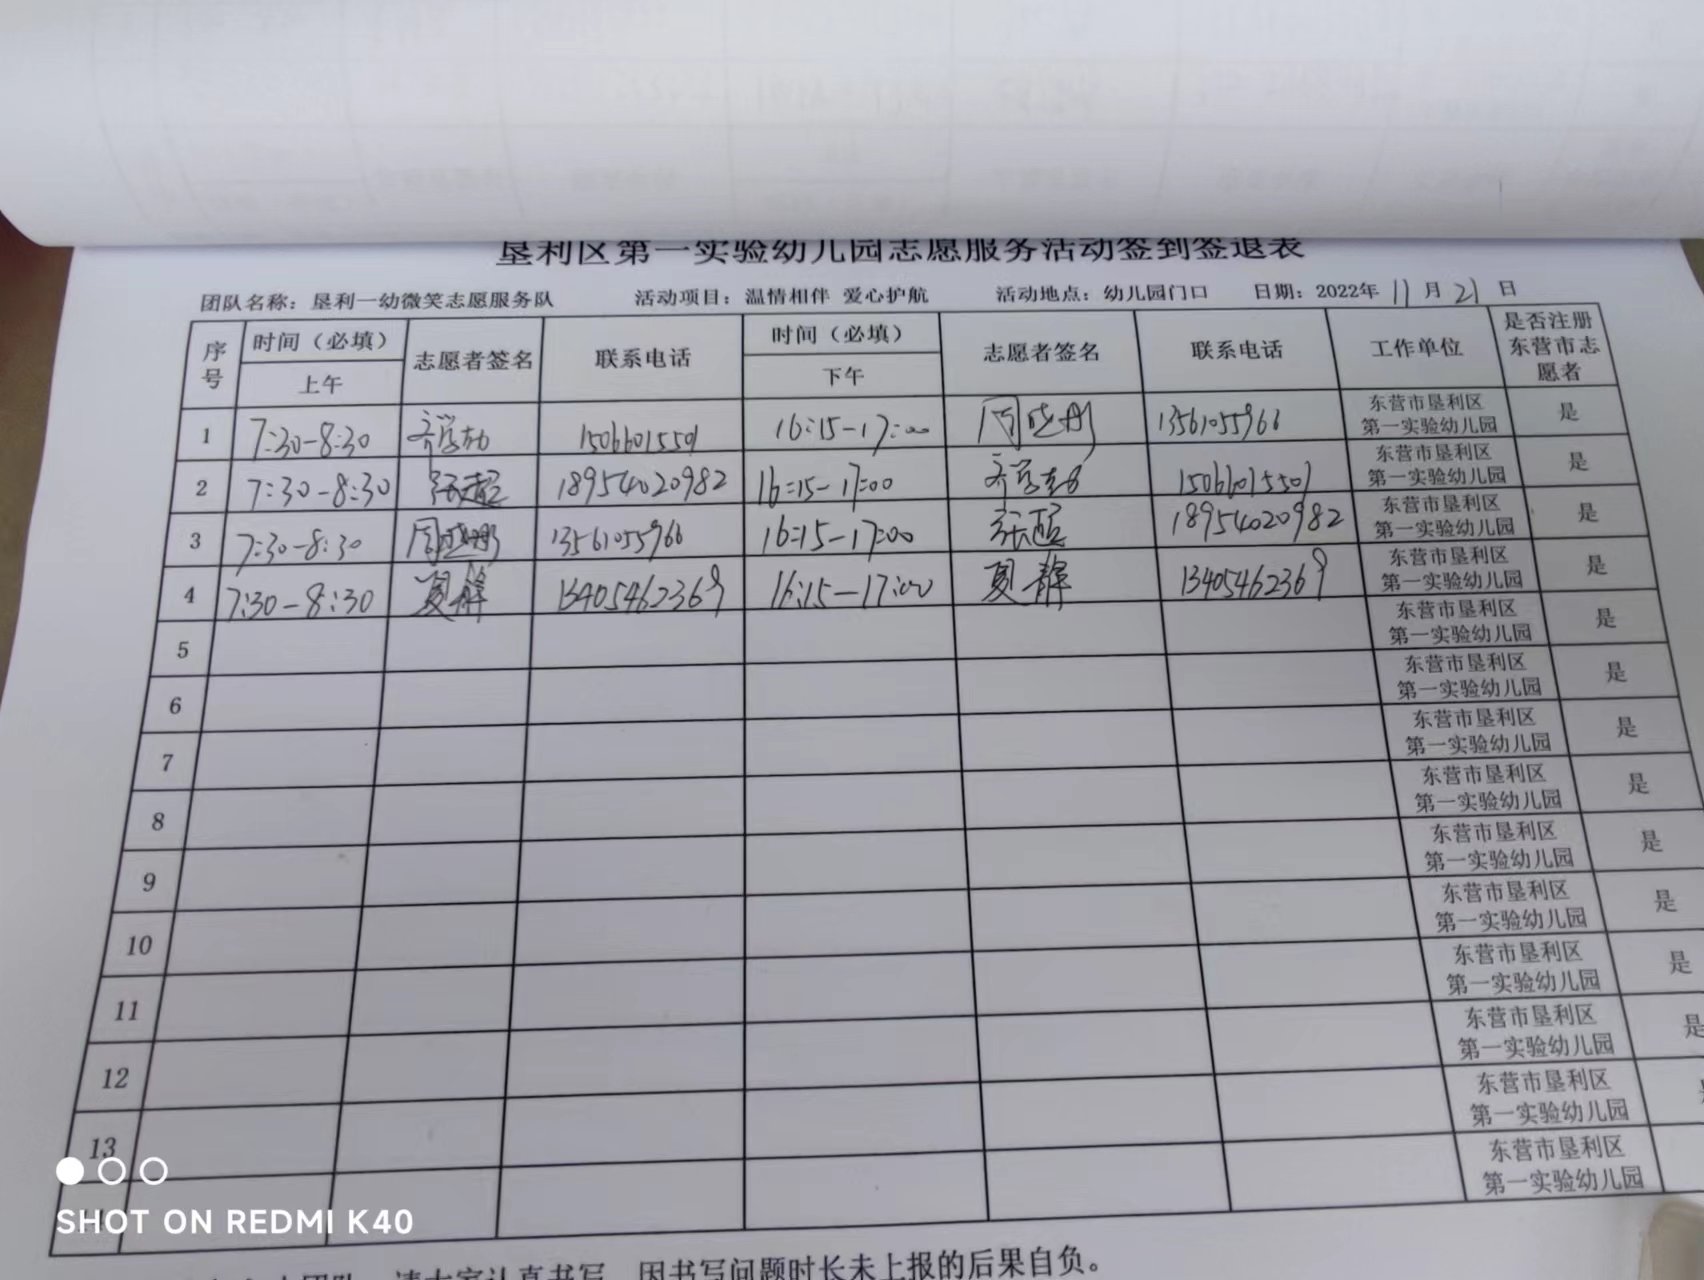 垦利区第一实验幼儿园志愿服务活动签到签退表
团队名称：垦利一幼微笑志愿服务队 活动项目：温情相伴 爱心护航 活动地点：幼儿园门口 日期：2022年 11 月 21 日
序号 时间（必填） 志愿者签名 联系电话 时间（必填） 志愿者签名 联系电话 工作单位 是否注册东营市志愿者
上午 下午
1 7:30-8:30 15066015501 16:15-17:00 周晓彤 13561055966 东营市垦利区第一实验幼儿园 是
2 7:30-8:30 张超 18954020982 16:15-17:00 15066015501 东营市垦利区第一实验幼儿园 是
3 7:30-8:30 周晓彤 13561055966 16:15-17:00 张超 18954020982 东营市垦利区第一实验幼儿园 是
4 7:30-8:30 夏静 13405462369 16:15-17:00 夏静 13405462369 东营市垦利区第一实验幼儿园 是
5 东营市垦利区第一实验幼儿园 是
6 东营市垦利区第一实验幼儿园 是
7 东营市垦利区第一实验幼儿园 是
8 东营市垦利区第一实验幼儿园 是
9 东营市垦利区第一实验幼儿园 是
10 东营市垦利区第一实验幼儿园 是
11 东营市垦利区第一实验幼儿园 是
12 东营市垦利区第一实验幼儿园 是
13 东营市垦利区第一实验幼儿园
东营市垦利区第一实验幼儿园
请大家认真书写 因书写问题时长未上报的后果自负。
SHOT ON REDMI K40